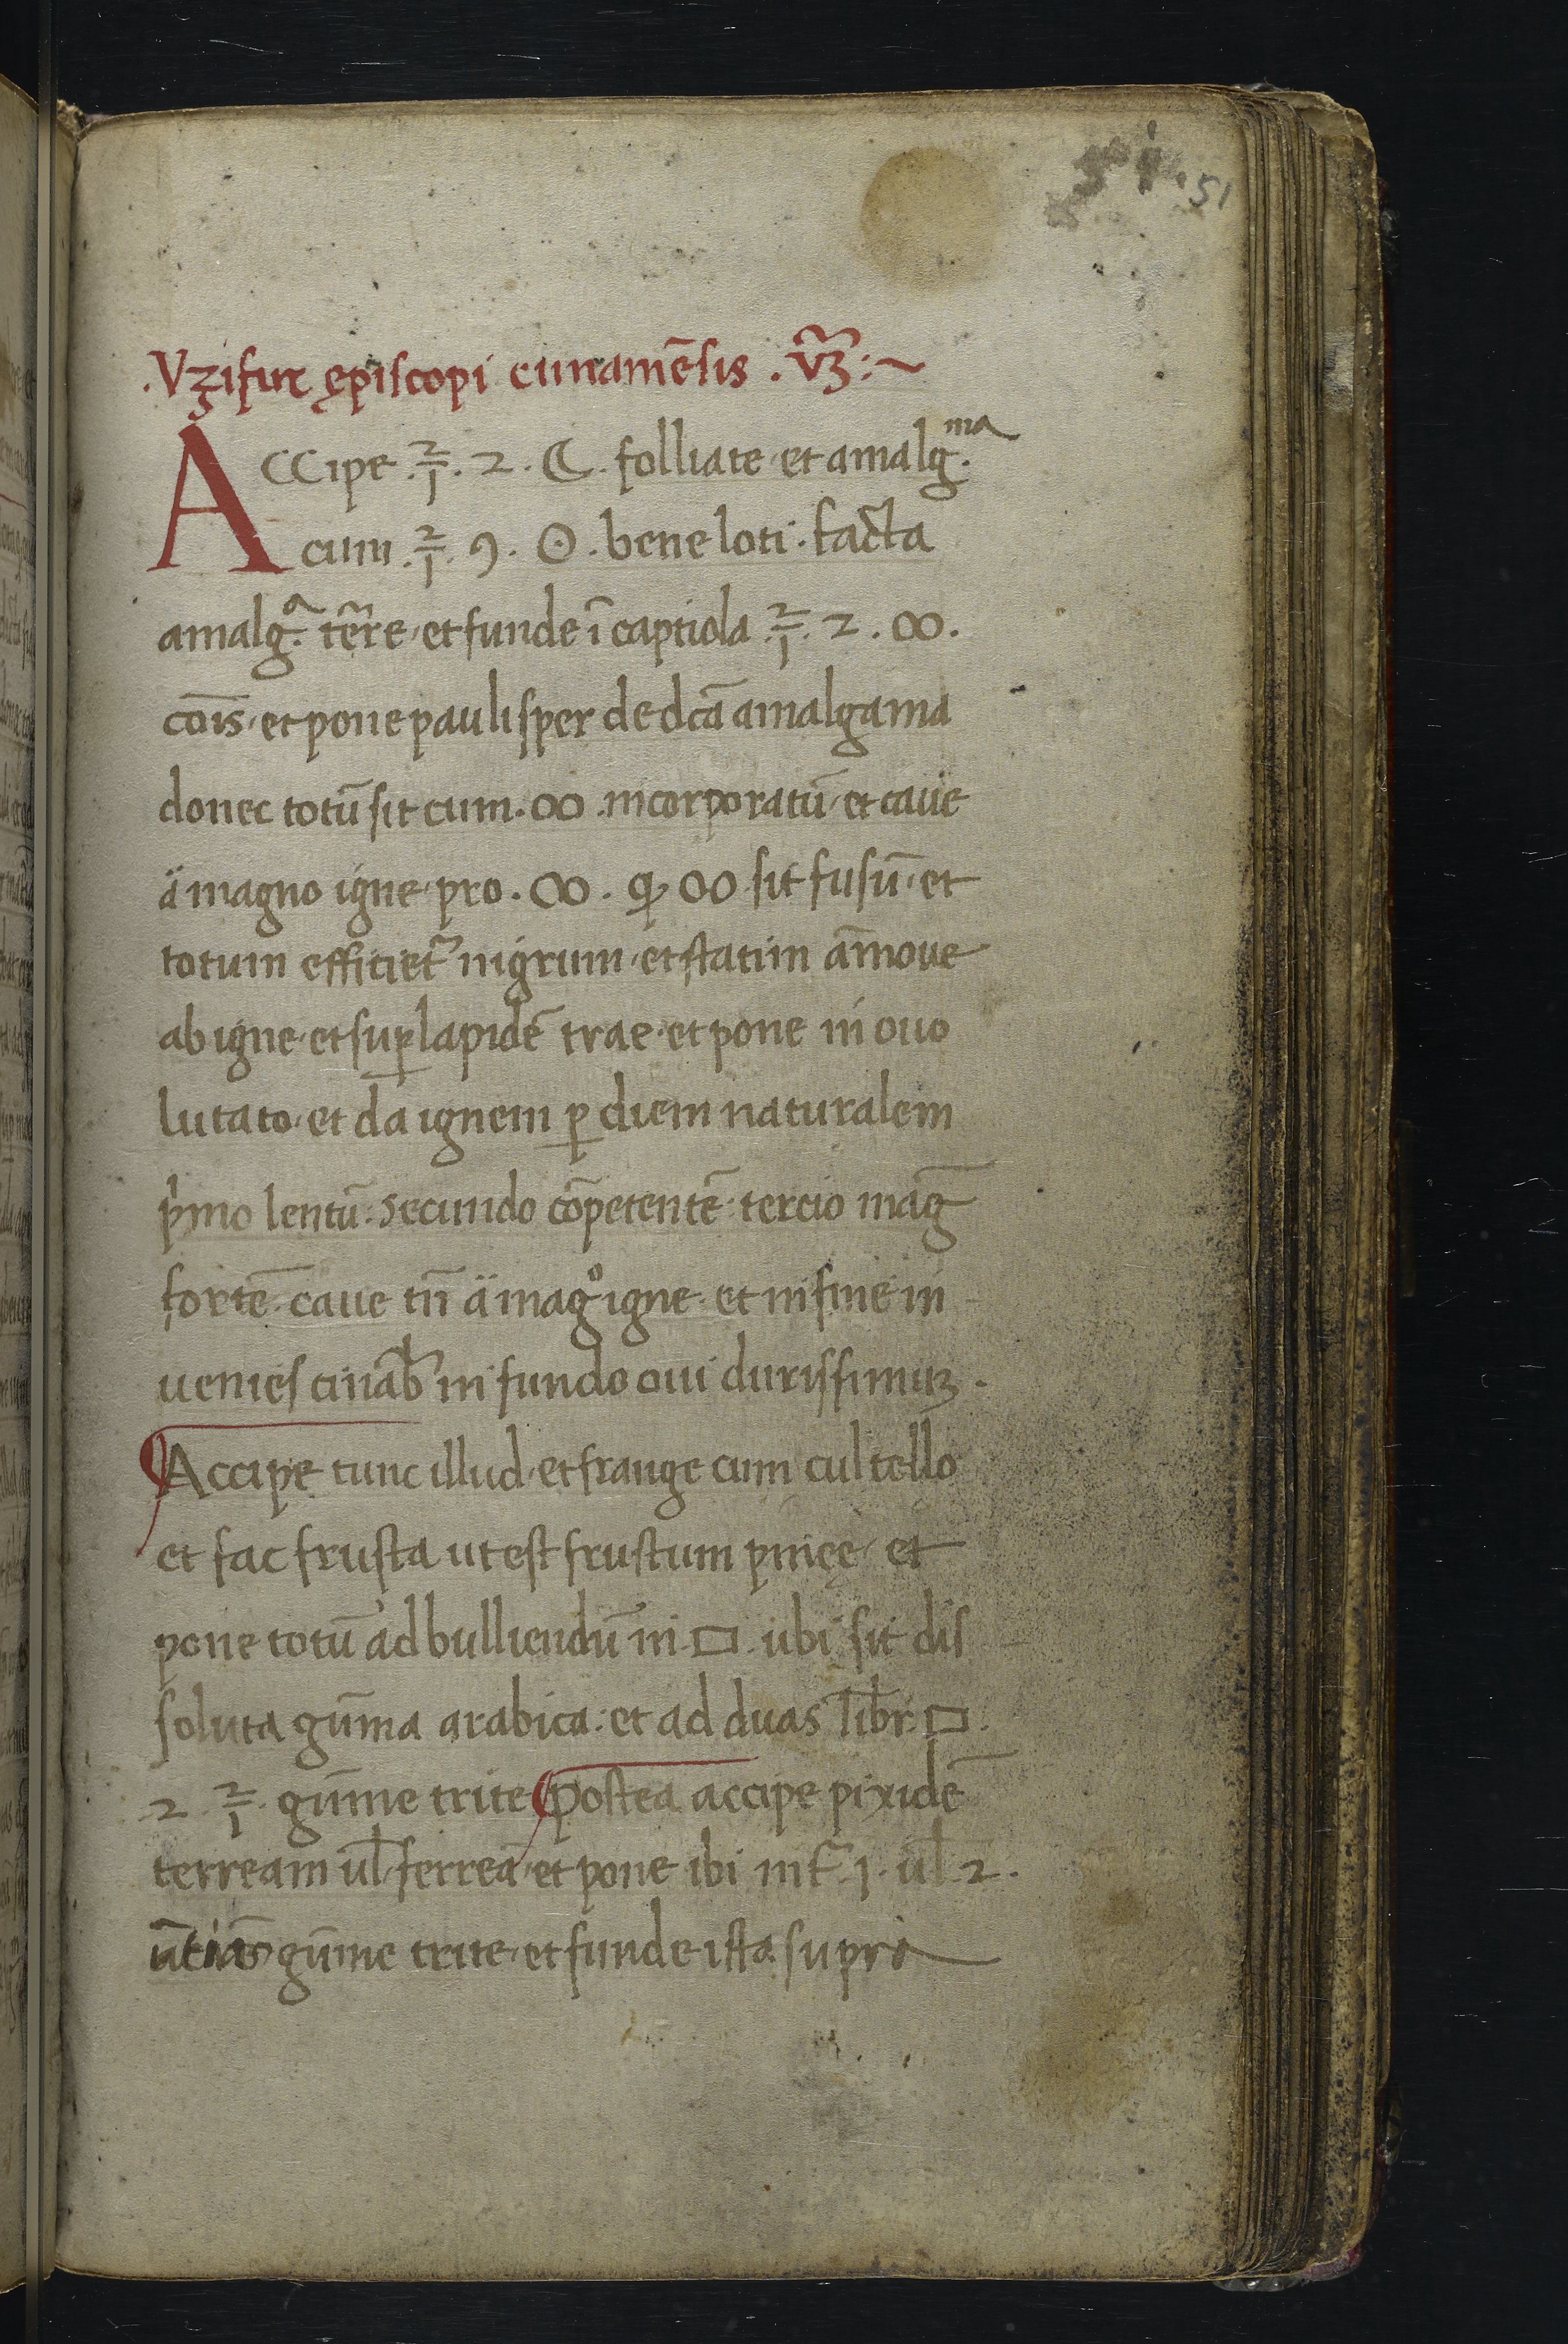 51
.Vzifur ępiscopi cunamēsis . vꝫ̃:~
ACCipe .℥. 2 . ☾ . folliate et amalg.ᵐᵃ
cum .℥. 9 . ☉ . bene loti . facta
amalg.ᵃ tēre et funde ī captiola .℥. 2 . ∞ .
cōis et pone paulisper de dcā amalgama
donec totū sit cum . ∞ . incorporatū et caue
a magno igne pro . ∞ . ꝙ ∞ sit fusū et
totum efficiet᷑ nigrum et statim am̄oue
ab igne et suꝑ lapidē trae et pone in ouo
lutato et da ignem ꝑ diem naturalem
pⁱmo lentū . secundo cōpetentē . tercio maḡ
fortē . caue tn̄ a magº igne . et in fine in
uenies cinab̄ in fundo oui durissimuꝫ .
Accipe tunc illud et frange cum cultello
et fac frusta ut est frustum pineę et
pone totū ad bulliendū in . □ . ubi sit dis
soluta gūma arabica : et ad duas libr̄ . □ .
.2 .℥. gūme trite Postea accipe pixidē
terream ul̄ ferreā et pone ibi int᷑ 1 . ul̄ 2 .
ūtias gūme trite et funde ista supra